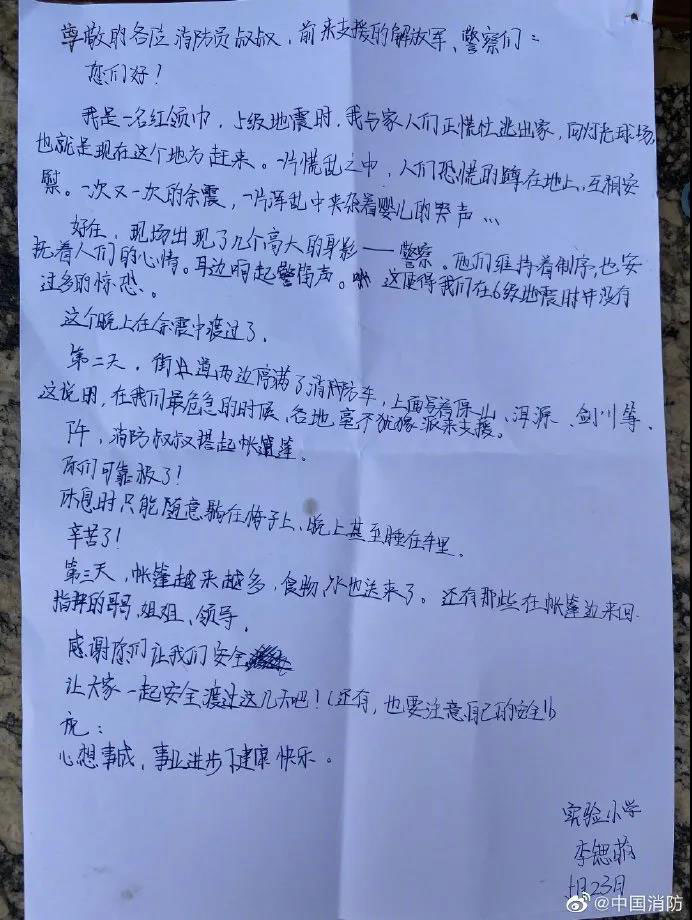 尊敬的各位消防员叔叔，前来支援的解放军、警察们：
您们好！
我是一名红领巾，5级地震时，我与家人们正慌忙逃出家，向灯光球场，
也就是现在这个地方赶来。一片慌乱之中，人们恐慌的蹲在地上，互相安
慰。一次又一次的余震，一片浑乱中夹杂着婴儿的哭声…
好在，现场出现了几个高大的身影——警察。他们维持着制序，也安
抚着人们的心情。耳边响起警笛声。这使得我们在6级地震时并没有
过多的惊恐。
这个晚上在余震中渡过了。
第二天，街道两边停满了消防车，上面写着保山、洱源、剑川等，
这说明，在我们最危急的时候，各地毫不犹豫派来支援。
下午，消防叔叔搭起帐篷。
你们可靠极了！
休息时只能随意躺在椅子上、晚上甚至睡在车里。
辛苦了！
第三天，帐篷越来越多，食物、水也送来了。还有那些在帐篷边来回
指挥的哥哥、姐姐、领导，
感谢您们让我们安全
让大家一起安全渡过这几天吧！（还有，也要注意自己的安全！）
祝：
心想事成，事业进步，健康快乐。
实验小学
李锶
5月23日
@中国消防